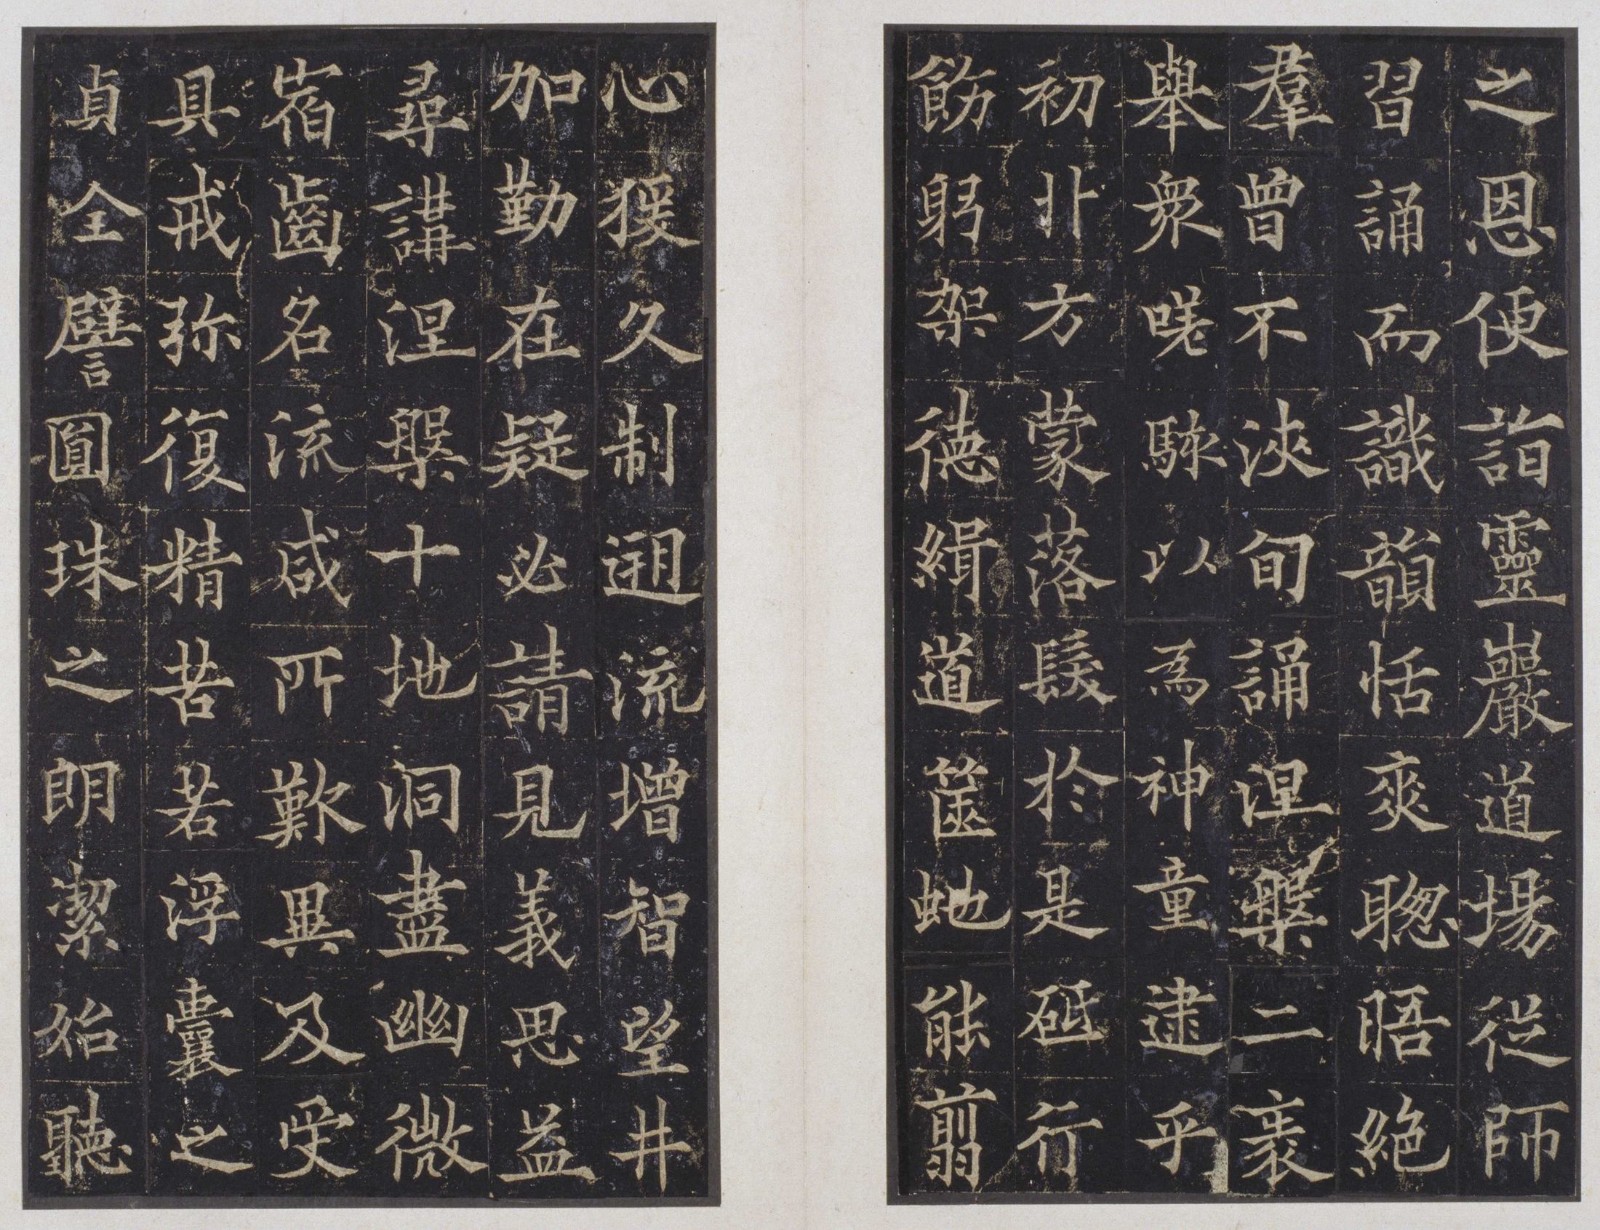 之恩便詣靈巖道場從師
習誦而識韻恬爽聰晤絕
羣曾不浹旬誦涅槃二袠
舉衆嗟駭以為神童逮乎
初丱方蒙落髮於是砥行
飭躬架德緝道篋虵能翦
心猨久制迴流增智望井
加勤在疑必請見義思益
尋講涅槃十地洞盡幽微
宿齒名流咸所歎異及受
具戒弥復精苦若浮囊之
貞全譬圓珠之朗潔始聽